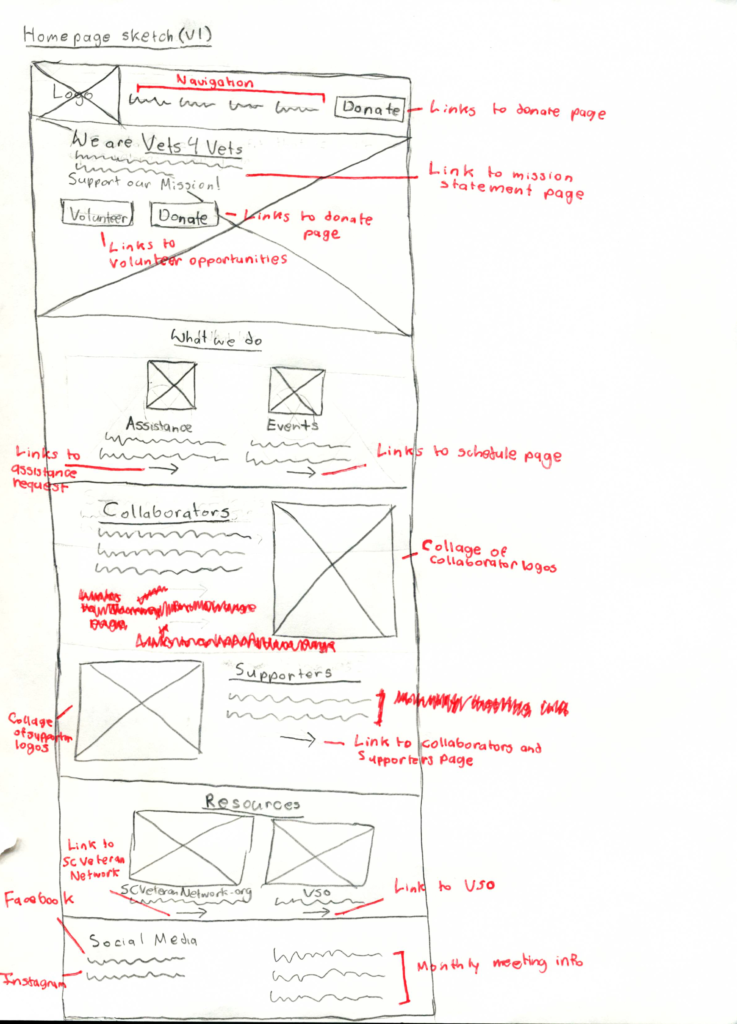 Homepage sketch (V1)
Logo
Navigation
Donate
Links to donate page
We are Vets 4 Vets
Support our Mission!
Link to mission
statement page
Volunteer
Donate
Links to donate
page
Links to
volunteer opportunities
What we do
Assistance
Events
Links to
assistance
request
Links to schedule page
Collaborators
Collage of
collaborator logos
page
Supporters
Collage
of supporter
logos
Link to collaborators and
supporters page
Resources
Link to
SC Veteran
Network
SCVeteranNetwork.org
VSO
Link to VSO
Facebook
Social Media
Instagram
Monthly meeting info